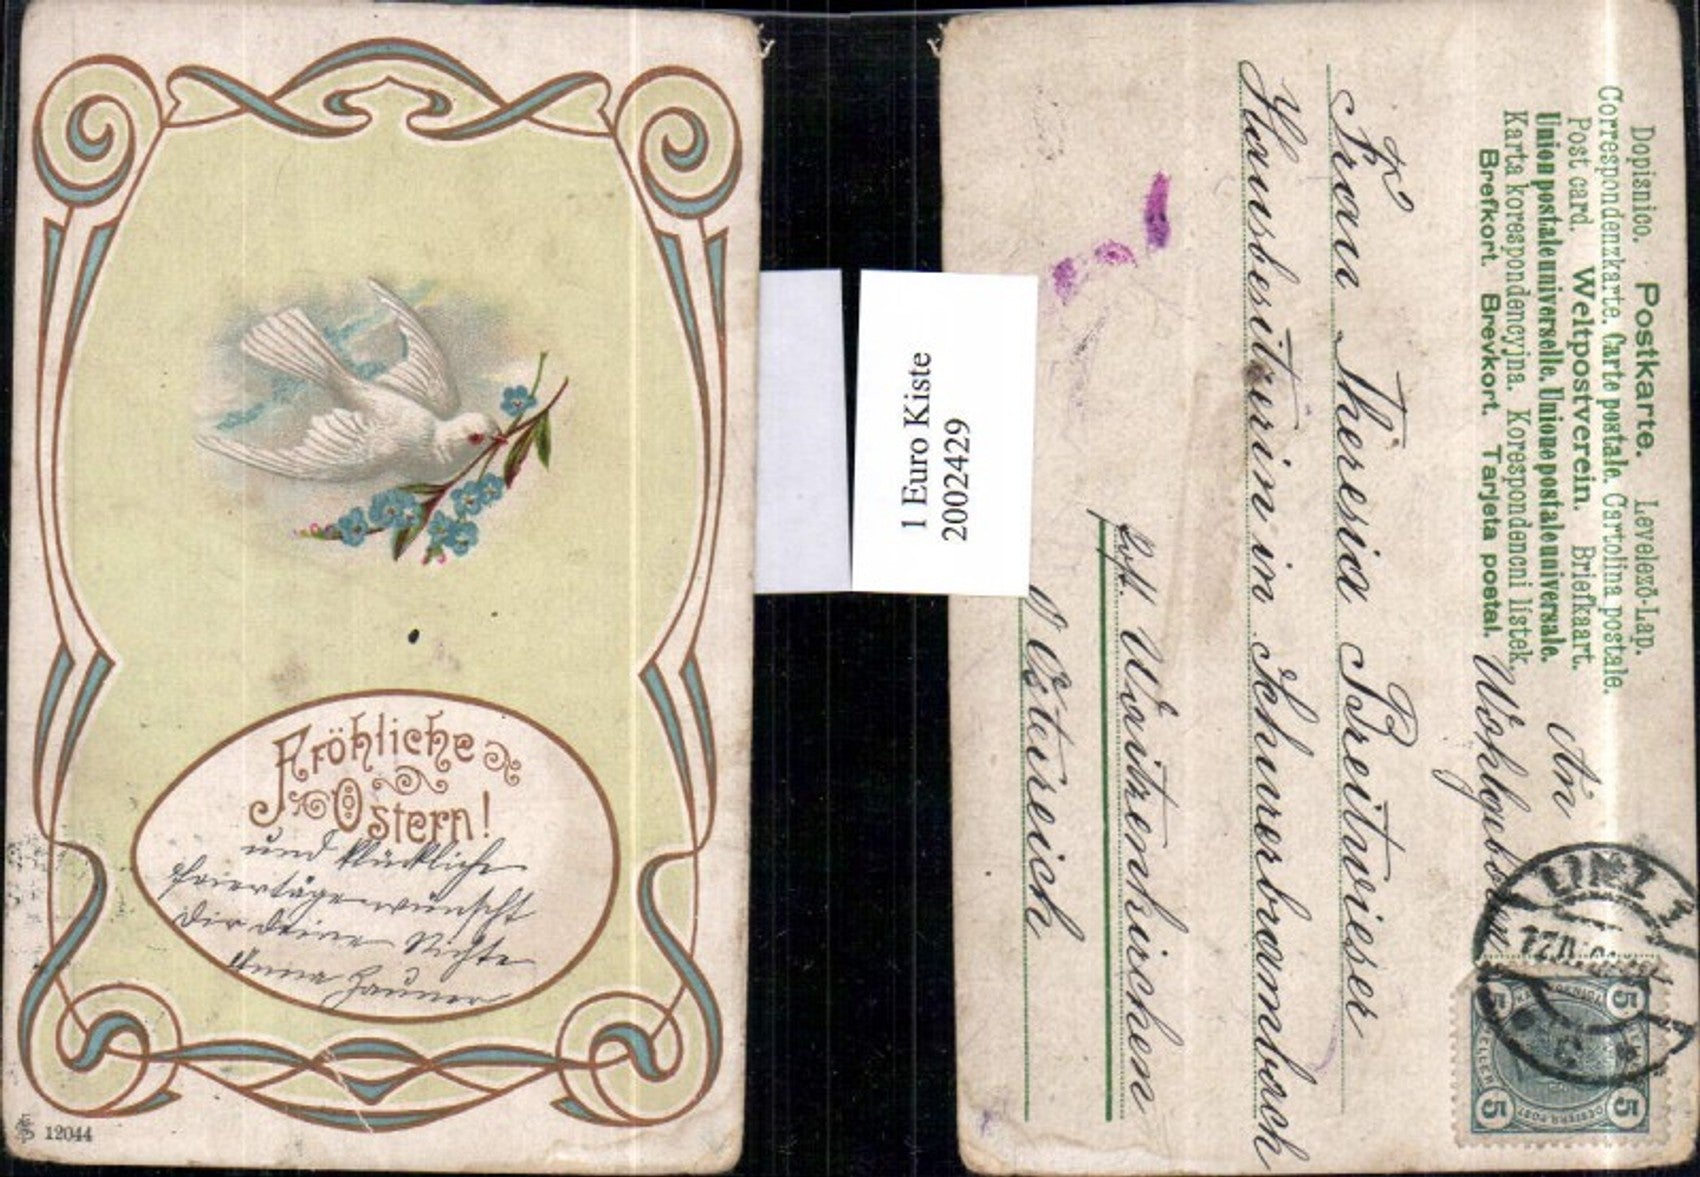 Fröhliche
Ostern!
und klückliche
feiertäge wünscht
dir deine Nichte
Anna
12044
1 Euro Kiste
20024429
Dopisnico. Postkarte. Levelező-Lap.
Correspondenzkarte. Carte postale. Cartolina postale.
Post card. Weltpostverein. Briefkaart.
Union postale universelle. Unione postale universale.
Karta korespondencyjna. Korespondencni lístek.
Brefkort. Brevkort. Tarjeta postal.
An
Wohlgeboren
Frau Theresia Breitwieser
Hausbesitzerin in Schwerbambach
Post. Waitzenkirchen
Östereich
LINZ 1
5 5
5 5